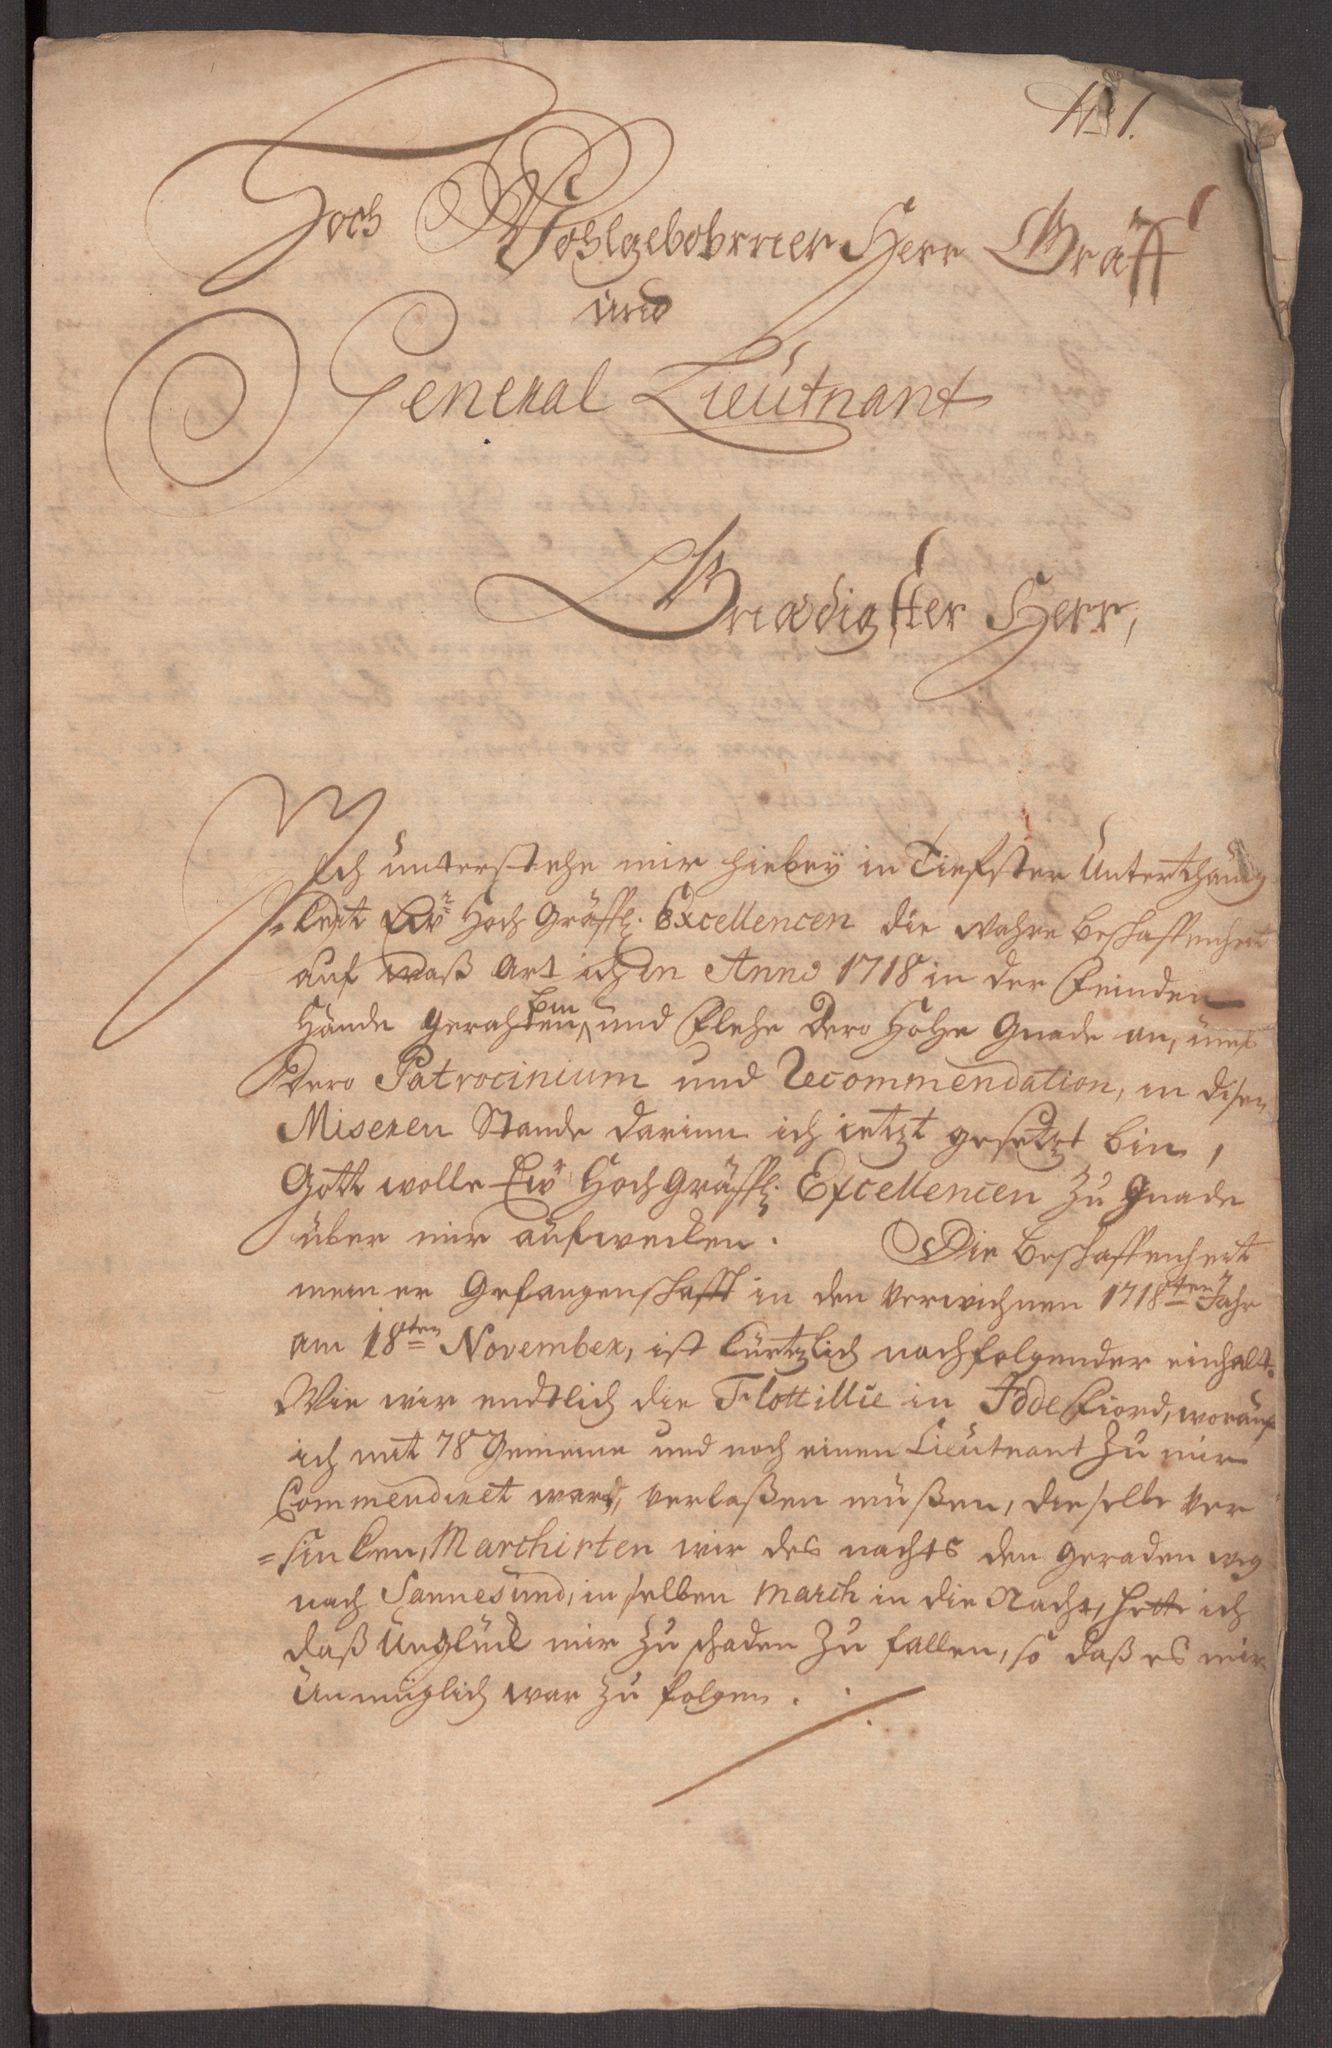 No 1.
Hoch Wohlgebohrner Herr Gräff
und
General Lieutnant
Gnædigster Herr,
Ich unterstehe mir hiebey in Tiefster Unterthänig
keit Ewr Hoch Gräffl. Excellencen die wahre beschaffenheit
auf waß Art ich in Anno 1718 in der Feinden
Hände gerahten bin, und Flehe Dero Hohe Gnade an, ümb
Dero Patrocinium und Recommendation, in disen
Miseren Stande darinn ich ietzt gesetzt bin,
Gott wolle Ewr HochGräffl. Excellencen zu Gnade
über mir aufwecken. Die beschaffenheit
meiner Gefangenschafft in den verwichnen 1718ten Jahr
am 18ten November, ist kürtzlich nachfolgender einhalt.
Wie wir endtlich die Flottillie in Iddefiord, worauf
ich mit 78 Gemeine und noch einen Lieutnant zu mir
Commendiret ward, verlaßen müßen, dieselbe ver
=sinken, Marchirten wir des nachts den geraden weg
nach Sannesund, in selben March in die Nacht, hette ich
daß Unglück mir zu schaden zu fallen, so daß es mir
Unmüglich war zu folgen.